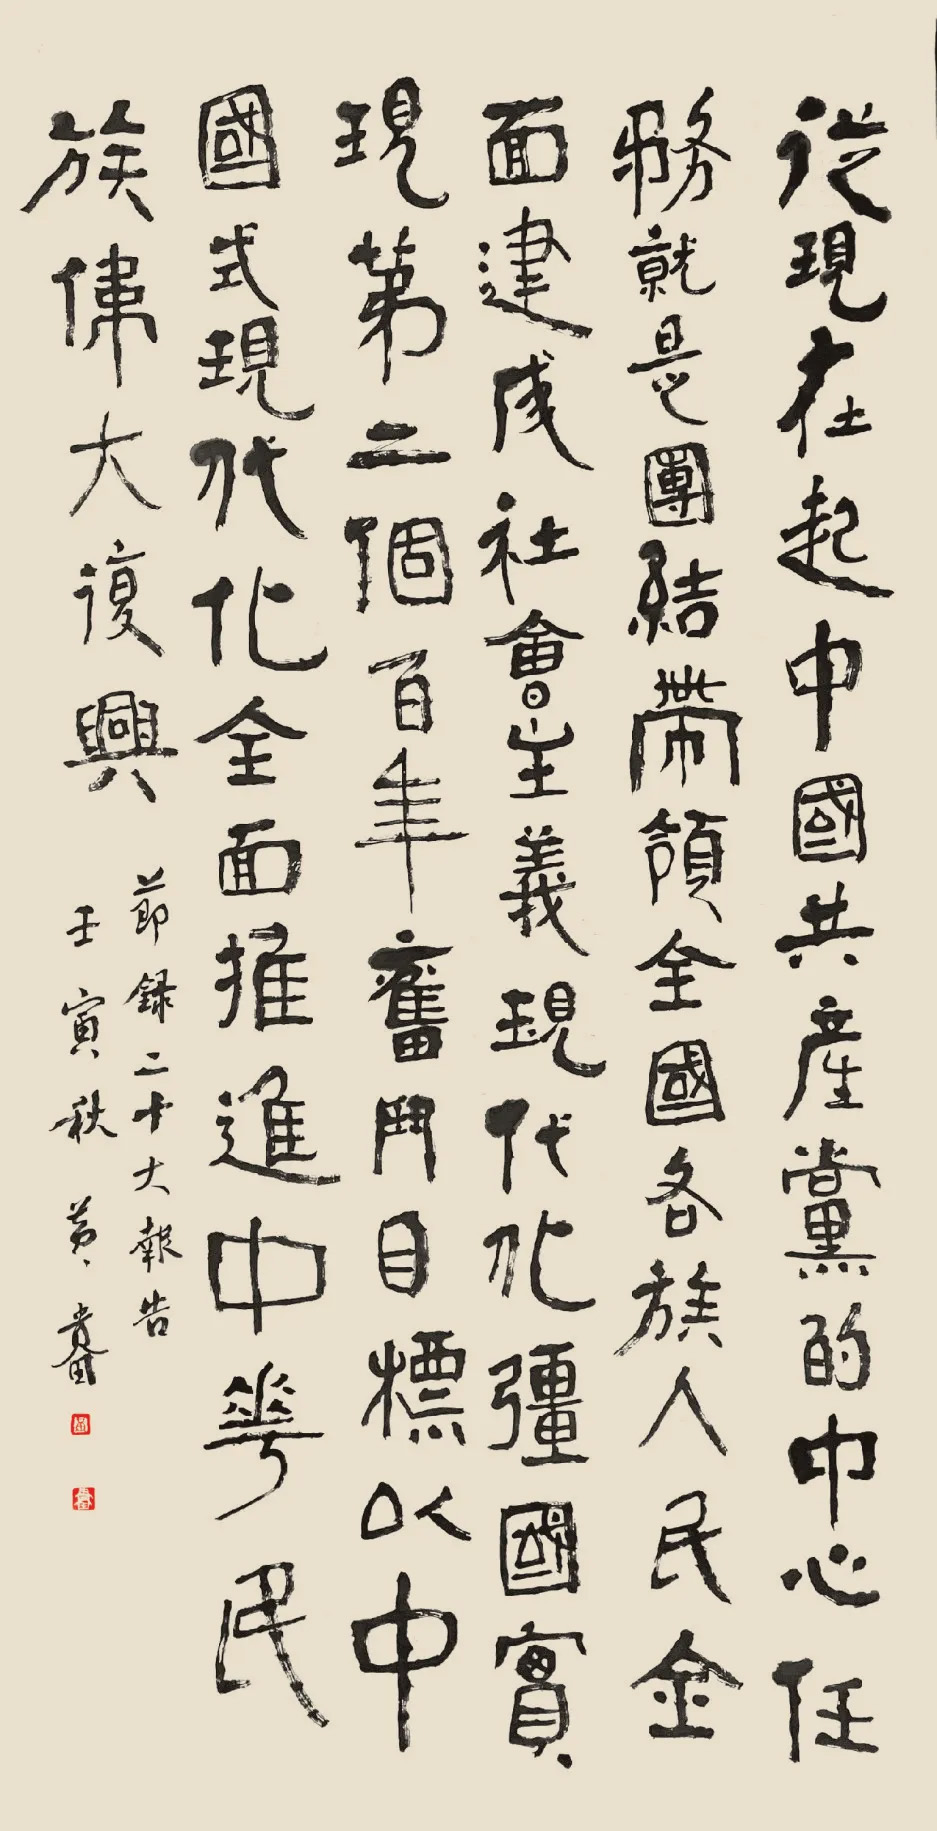 從現在起中國共產黨的中心任
務就是團結帶領全國各族人民金
面建成社會主義現代化彊國實
現第二個百年奮鬥目標以中
國式現代化全面推進中華民
族偉大復興
節録二十大報告
壬寅秋 黄